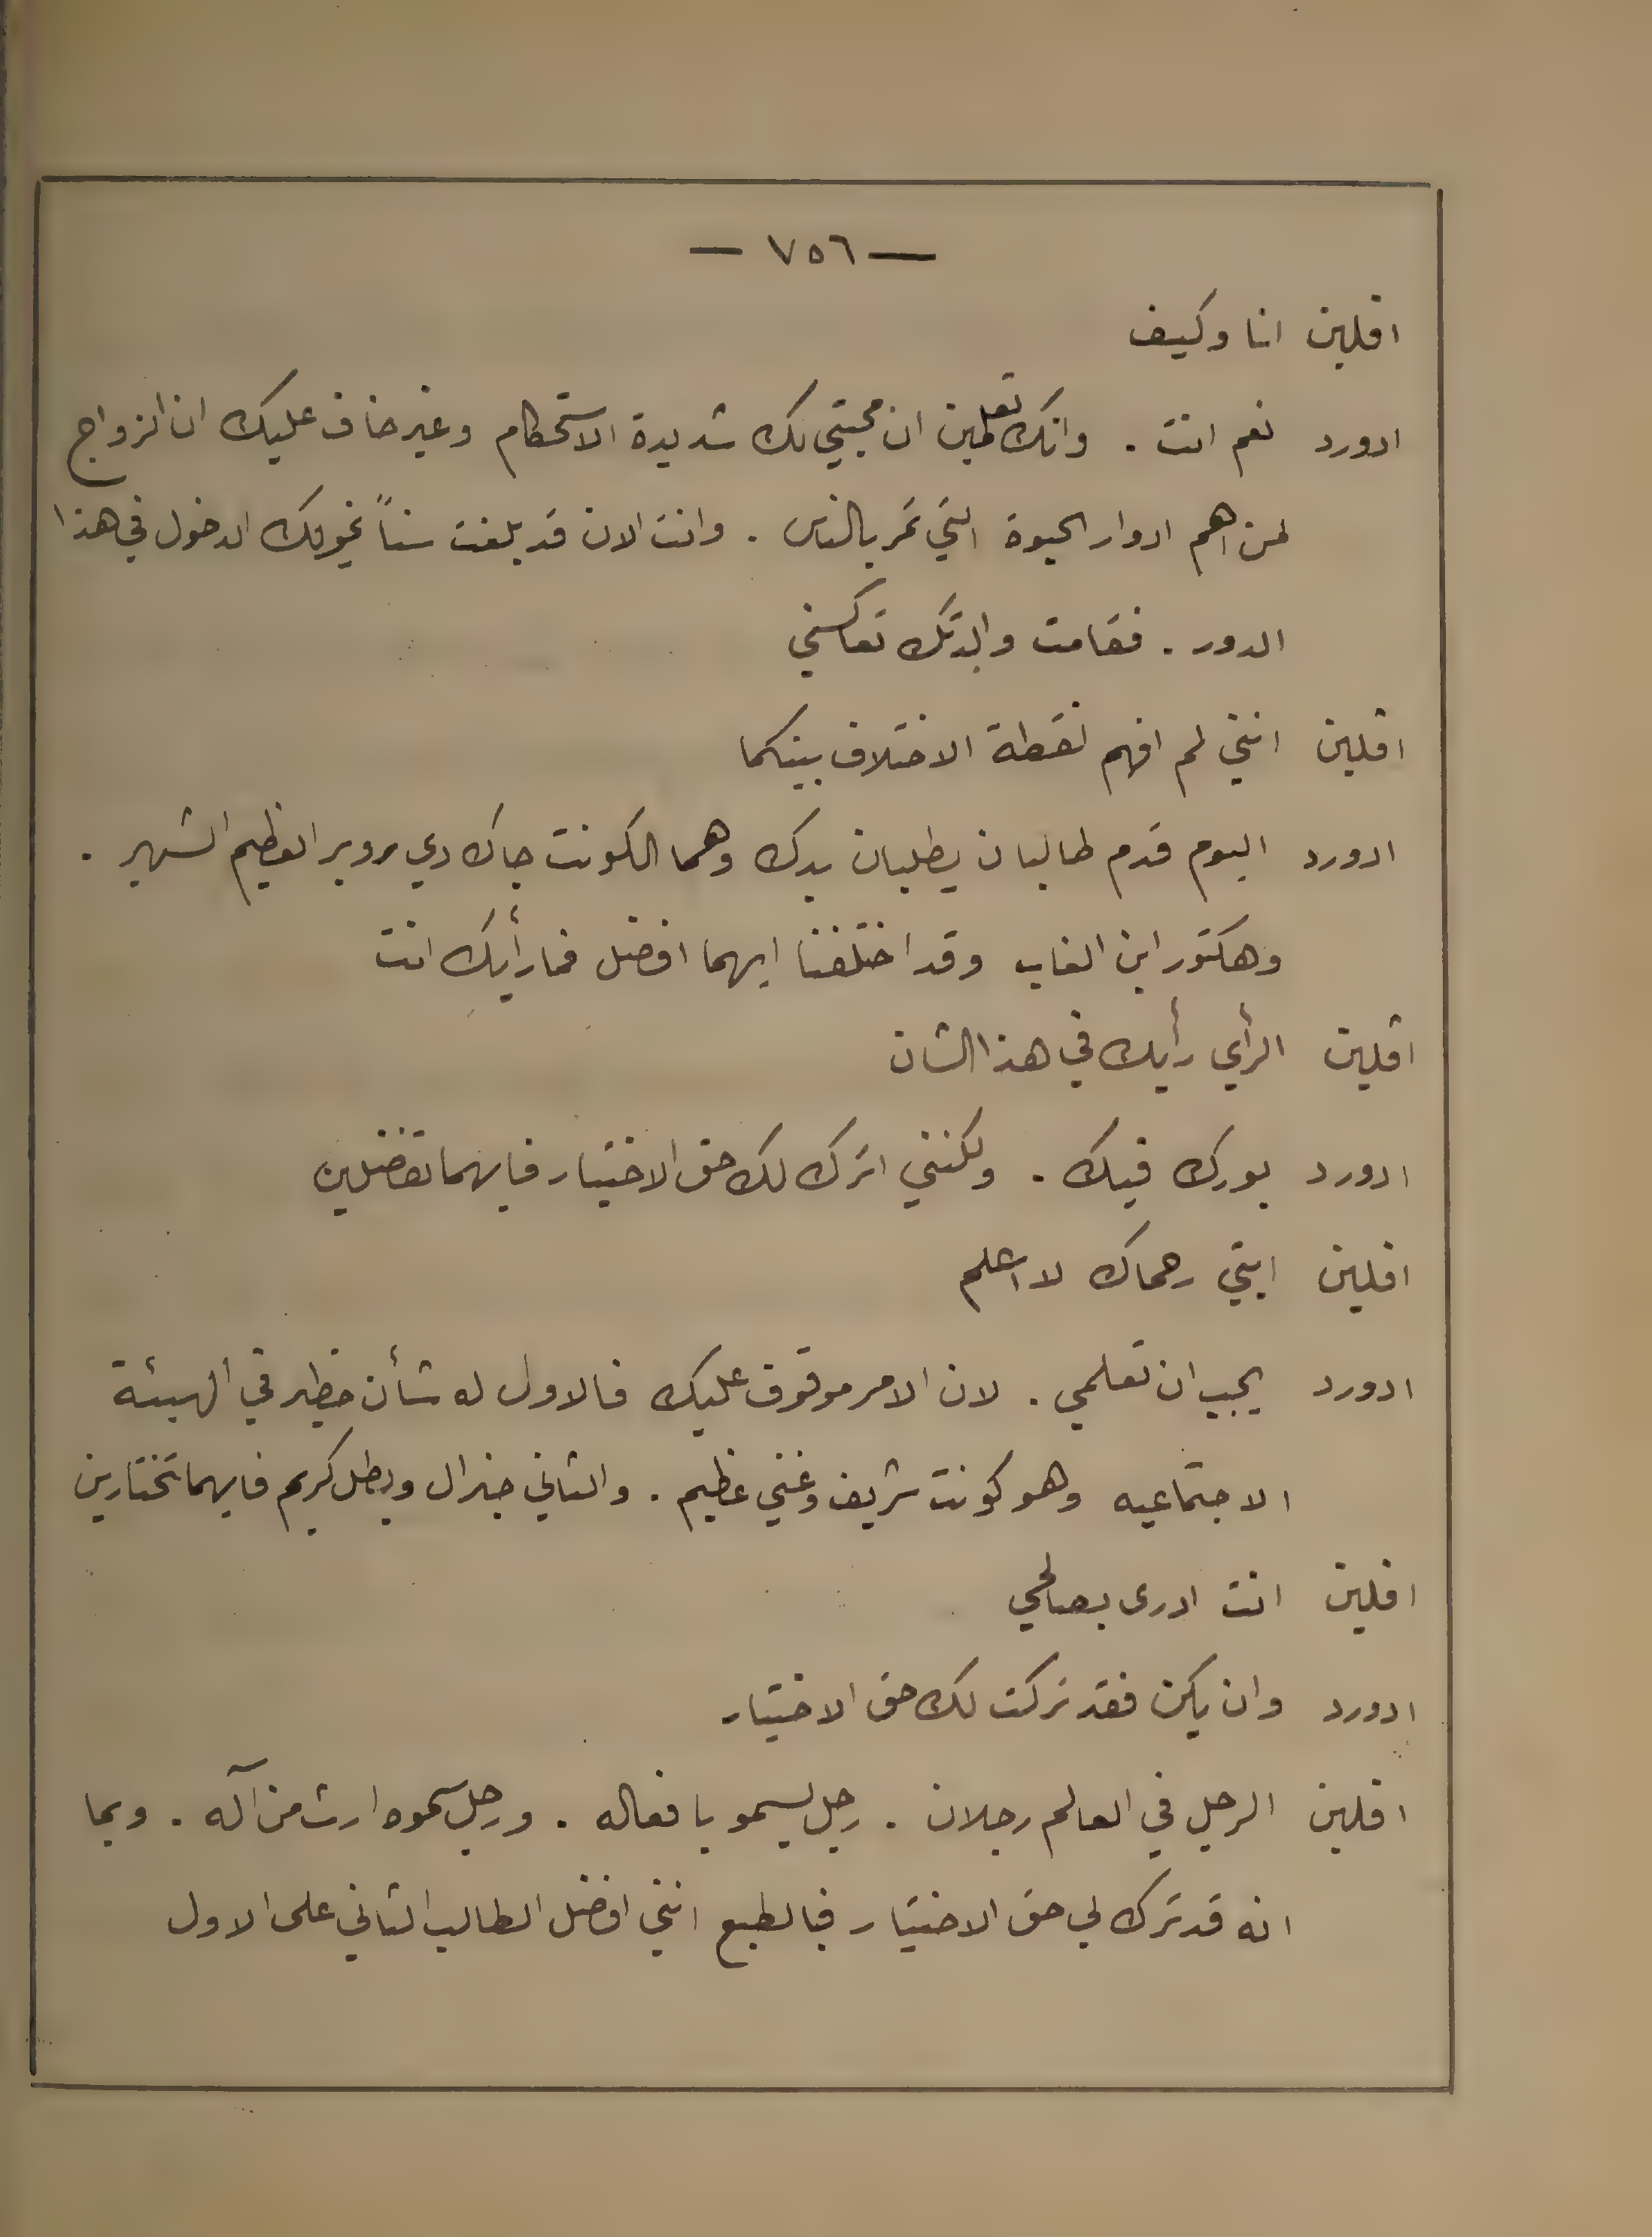 — ٧٥٦ —
افلين انا وكيف
ادورد نعم انت . وانك تعلمين ان محبتي لك شديدة الاستحكام وغير خاف عليك ان الزواج
لمن اهم ادوار الحيوة التي تمر بالناس . وانت الان قد بلغت سناً يخولك الدخول في هذا
الدور . فقامت والدتك تعاكسني
افلين انني لم افهم نقطة الاختلاف بينكما
ادورد اليوم قدم طالبان يطلبان يدك وهما الكونت جاك دي بروير العظيم الشهير .
وهكتور ابن الغاب وقد اختلفنا ايهما افضل فما رأيك انت
افلين الرأي رأيك في هذا الشان
ادورد بورك فيك . ولكنني اترك لك حق الاختيار فايهما تفضلين
افلين ابتي رحماك لا اعلم
ادورد يجب ان تعلمي . لان الامر موقوف عليك فالاول له شأن خطير في الهيئة
الاجتماعيه وهو كونت شريف وغني عظيم . والثاني جنرال وبطل كريم فايهما تختارين
افلين انت ادرى بصالحي
ادورد وان يكن فقد تركت لك حق الاختيار
افلين الرجل في العالم رجلان . رجل يسمو بافعاله . ورجل سموه ارث من آله . وبما
انه قد ترك لي حق الاختيار فبالطبع انني افضل الطالب الثاني على الاول